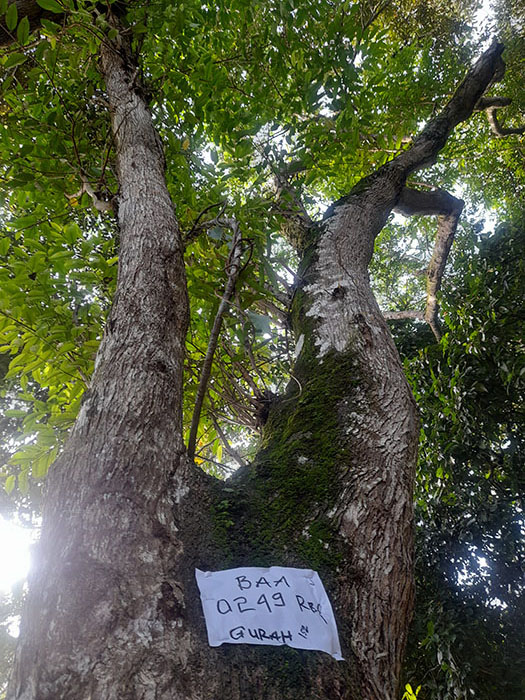 BAA
0249 RBR
GURAH